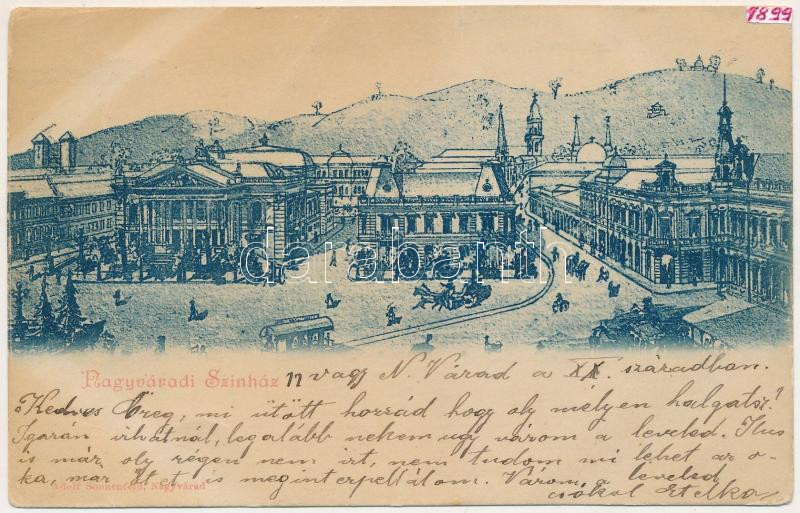 1899
darabanth
Nagyváradi Színház
" vagy N. Várad a XX. században.
Kedves Öreg, mi ütött hozzád hogy oly mélyen halgatsz?
Igazán irhatnál, legalább nekem ugy várom a leveled. Ilus
is már oly régen nem irt, nem tudom mi lehet az o-
ka, már Őtet is meginterpellátom. Várom a leveled
csókol Etelka
Adolf Sonnenfeld, Nagyvárad